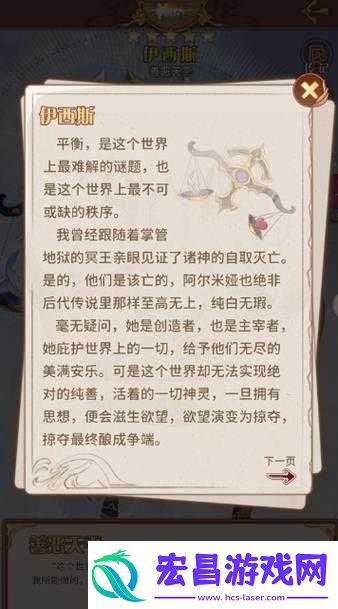 伊西斯
善恶天平
伊西斯
平衡，是这个世界
上最难解的谜题，也
是这个世界上最不可
或缺的秩序。
我曾经跟随着掌管
地狱的冥王亲眼见证了诸神的自取灭亡。
是的，他们是该亡的，阿尔米娅也绝非
后代传说里那样至高无上，纯白无瑕。
毫无疑问，她是创造者，也是主宰者，
她庇护世界上的一切，给予他们无尽的
美满安乐。可是这个世界却无法实现绝
对的纯善，活着的一切神灵，一旦拥有
思想，便会滋生欲望，欲望演变为掠夺，
掠夺最终酿成争端。
下一页
善恶天
“这个世
我所能做的，
宏昌游戏网
www.hcs-laser.com